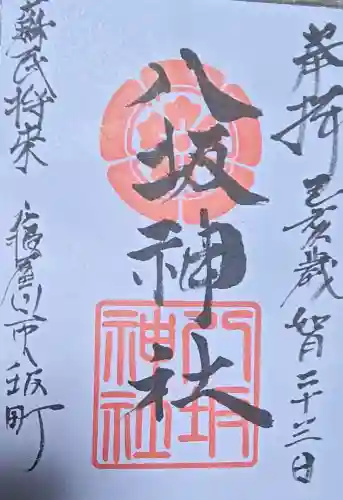 奉拝 己亥歳 如月二十三日
八坂神社
八坂
神社
蘇民将来
寝屋川市八坂町